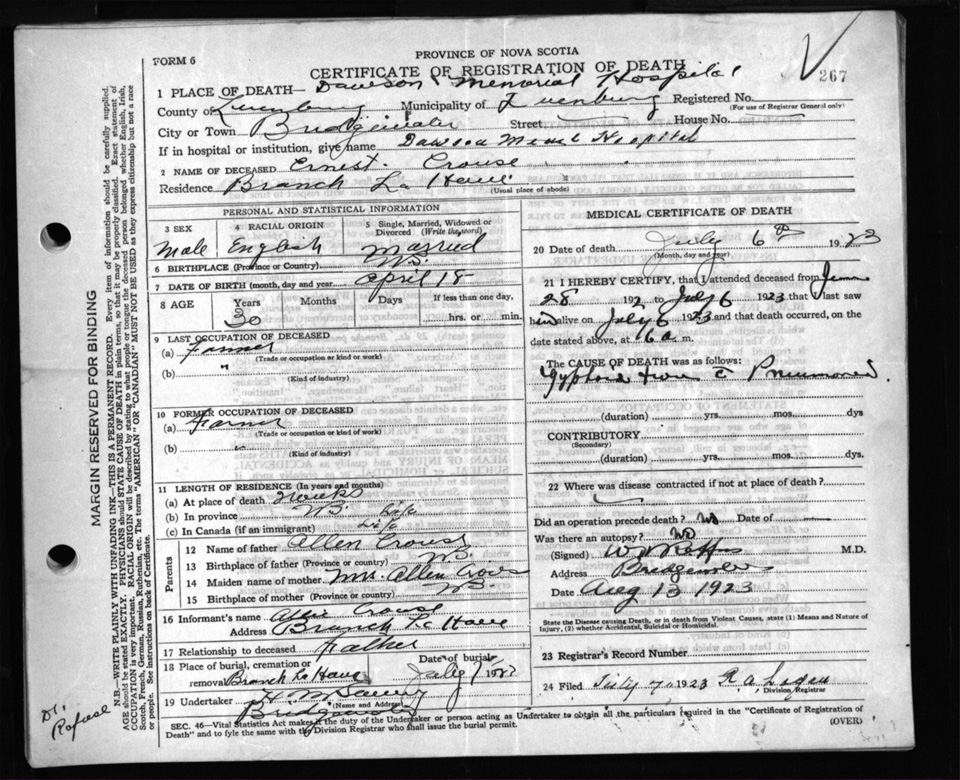 FORM 6
PROVINCE OF NOVA SCOTIA
CERTIFICATE OF REGISTRATION OF DEATH
267
1 PLACE OF DEATH— Dawson Memorial Hospital
County of Lunenburg Municipality of Lunenburg Registered No.
(For use of Registrar General only)
City or Town Bridgewater Street House No.
If in hospital or institution, give name Dawson Meml Hospital
2 NAME OF DECEASED Ernest Crouse
Residence Branch La Have
(Usual place of abode)
PERSONAL AND STATISTICAL INFORMATION
3 SEX Male
4 RACIAL ORIGIN English
5 Single, Married, Widowed or Divorced (Write the word) Married
6 BIRTHPLACE (Province or Country) N.S.
7 DATE OF BIRTH (month, day and year) April 18
8 AGE Years Months Days If less than one day,
30 hrs. or min.
9 LAST OCCUPATION OF DECEASED
(a) Farmer
(Trade or occupation or kind of work)
(b) "
(Kind of industry)
10 FORMER OCCUPATION OF DECEASED
(a) Farmer
(Trade or occupation or kind of work)
(b) "
(Kind of industry)
11 LENGTH OF RESIDENCE (In years and months)
(a) At place of death weeks
(b) In province N.S. Life
(c) In Canada (if an immigrant) Life
Parents
12 Name of father Allen Crouse
13 Birthplace of father (Province or country) N.S.
14 Maiden name of mother Mrs. Allen Crouse
15 Birthplace of mother (Province or country) N.S.
16 Informant's name Crouse
Address Branch La Have
17 Relationship to deceased Father
18 Place of burial, cremation or removal Branch La Have
Date of burial July 1923
19 Undertaker
(Name and Address)
Bridgewater
MEDICAL CERTIFICATE OF DEATH
20 Date of death July 6th 1923
(Month, day and year)
21 I HEREBY CERTIFY, that I attended deceased from June
28 192 to July 6 1923 that I last saw
him alive on July 6 1923 and that death occurred, on the
date stated above, at m.
The CAUSE OF DEATH was as follows:
Typhoid Fever c Pneumonia.
(duration) yrs. mos. dys
CONTRIBUTORY
(Secondary)
(duration) yrs. mos. dys.
22 Where was disease contracted if not at place of death?
Did an operation precede death? No Date of
Was there an autopsy? No
(Signed) M.D.
Address Bridgewater
Date Aug 13 1923
State the Disease causing Death, or in death from Violent Causes, state (1) Means and Nature of Injury, (2) whether Accidental, Suicidal or Homicidal.
23 Registrar's Record Number
24 Filed July 7 1923 R A Logan
Division Registrar
SEC. 46—Vital Statistics Act makes it the duty of the Undertaker or person acting as Undertaker to obtain all the particulars required in the "Certificate of Registration of
Death" and to fyle the same with the Division Registrar who shall issue the burial permit. (OVER)
MARGIN RESERVED FOR BINDING
N.B.—WRITE PLAINLY WITH UNFADING INK—THIS IS A PERMANENT RECORD. Every item of information should be carefully supplied.
AGE should be stated EXACTLY. PHYSICIANS should STATE CAUSE OF DEATH in plain terms, so that it may be properly classified. Exact statement of
OCCUPATION is very important. RACIAL ORIGIN will be described by stating to what people or tongue the deceased person belonged whether English, Irish,
Scotch, French, German, Russian, Ruthenian, etc. The terms "AMERICAN" or "CANADIAN" MUST NOT BE USED as they express citizenship but not a race
or people. See instructions on back of Certificate.
Dr.